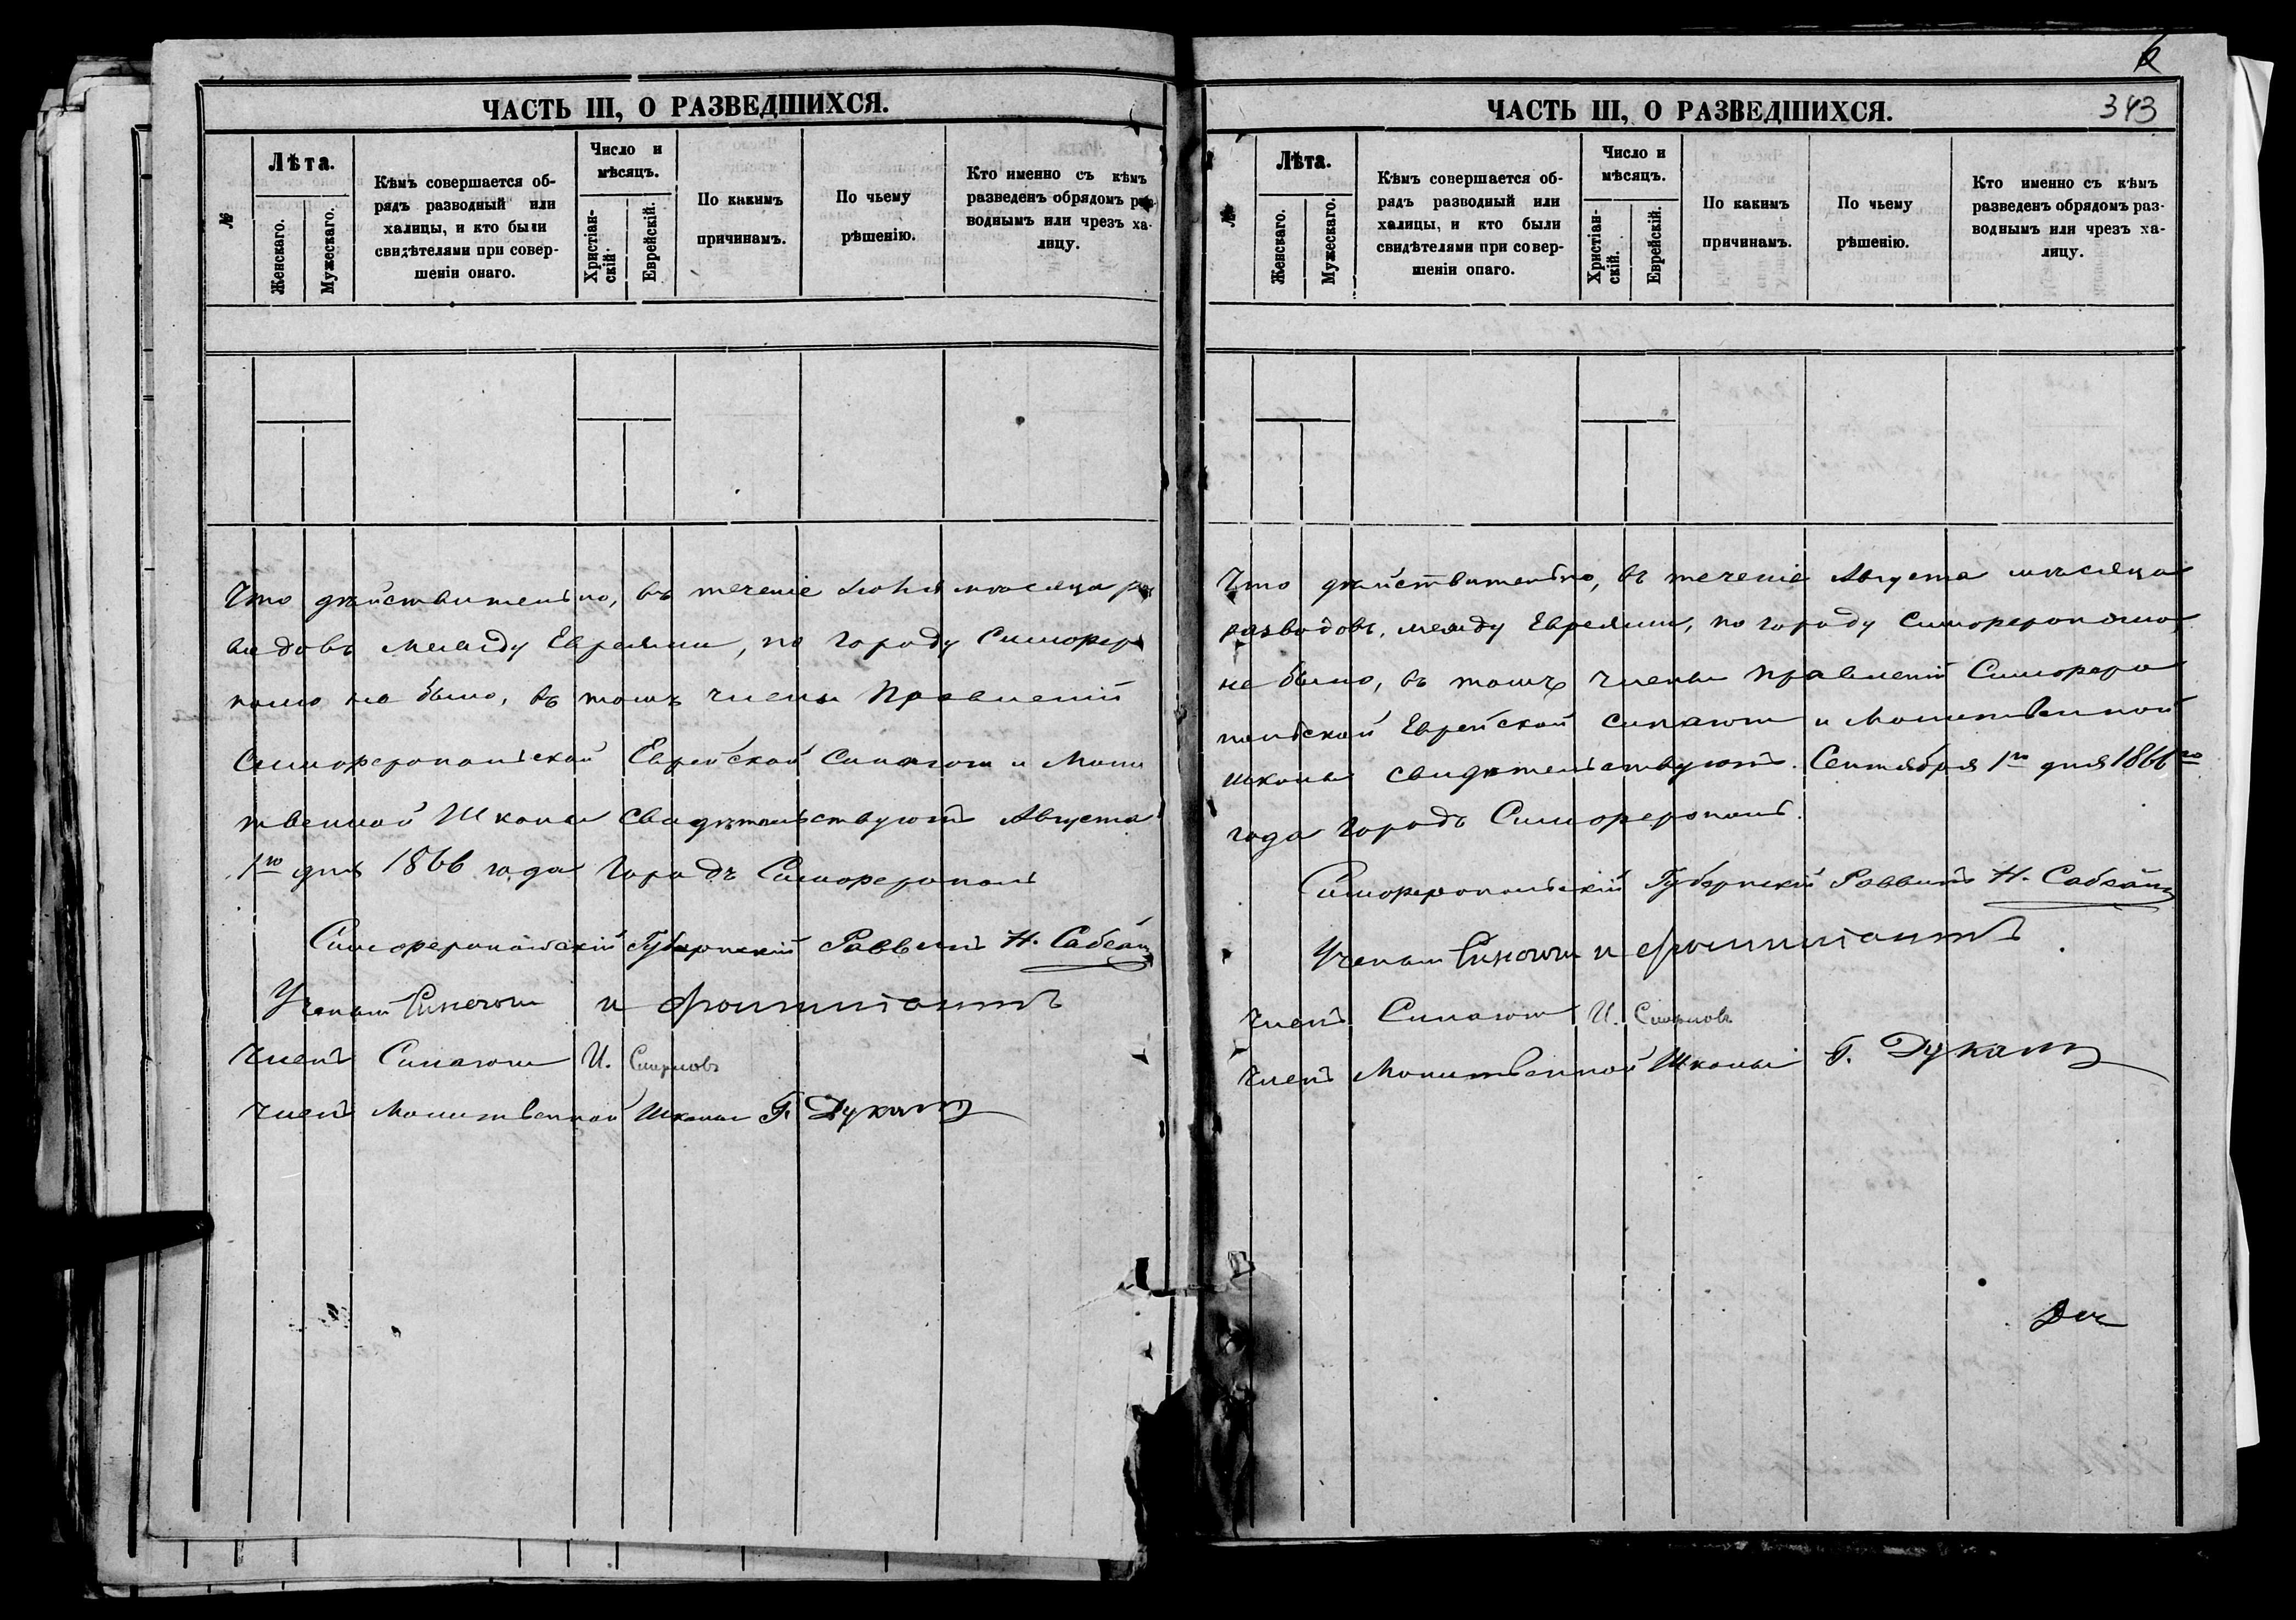 ЧАСТЬ III, О РАЗВЕДШИХСЯ.
№
Лѣта.
Женскаго.
Мужескаго.
Кѣмъ совершается об-
рядъ разводный или
халицы, и кто были
свидѣтелями при совер-
шеніи онаго.
Число и
мѣсяцъ.
Христіан-
скій.
Еврейскій.
По какимъ
причинамъ.
По чьему
рѣшенію.
Кто именно съ кѣмъ
разведенъ обрядомъ раз-
воднымъ или чрезъ ха-
лицу.
Что дѣйствительно, въ теченіе Іюля мѣсяца раз
водовъ между Евреями, по городу Симферо
полю не было, въ томъ члены Правленій
Симферопольской Еврейской Синагоги и Моли
твенной Школы свидѣтельствуютъ Августа
1го дня 1866 года Городъ Симферополь
Симферопольскій Губернскій Раввинъ Н.
Ученый Синагоги и
Членъ Синагоги И. Смирновъ
Членъ Молитвенной Школы Г. Дукатъ
6
343
ЧАСТЬ III, О РАЗВЕДШИХСЯ.
№
Лѣта.
Женскаго.
Мужескаго.
Кѣмъ совершается об-
рядъ разводный или
халицы, и кто были
свидѣтелями при совер-
шеніи онаго.
Число и
мѣсяцъ.
Христіан-
скій.
Еврейскій.
По какимъ
причинамъ.
По чьему
рѣшенію.
Кто именно съ кѣмъ
разведенъ обрядомъ раз-
воднымъ или чрезъ ха-
лицу.
Что дѣйствительно, въ теченіе Августа мѣсяца
разводовъ, между Евреями, по городу Симферополю,
не было, въ томъ члены правленій Симферо
польской Еврейской синагоги и Молитвенной
школы свидѣтельствуютъ. Сентября 1го дня 1866го
года Городъ Симферополь.
Симферопольскій Губернскій Раввинъ Н.
Ученый Синагоги и
Членъ Синагоги И. Смирновъ
Членъ Молитвенной Школы Г. Дукатъ